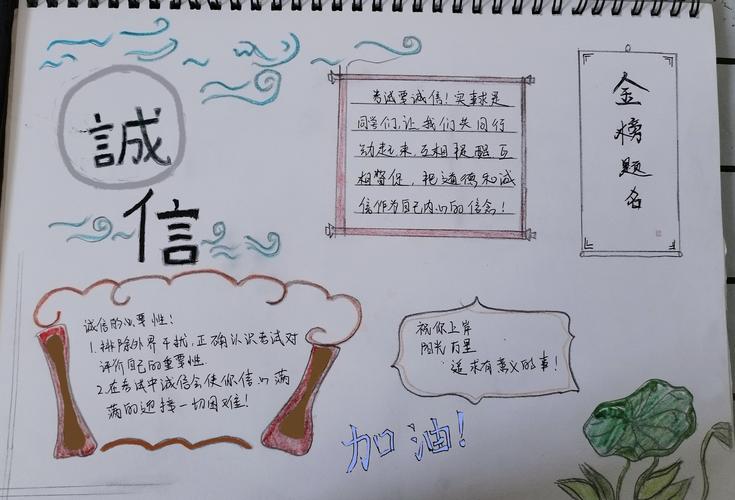 誠
信
考试要诚信！实事求是
同学们，让我们共同行
动起来，互相提醒互
相督促，把道德和诚
信作为自己内心的信念！
金榜题名
诚信的必要性！
1.排除外界干扰，正确认识考试对
评价自己的重要性.
2.在考试中诚信会使你信心满
满的迎接一切困难！
祝你上岸
阳光万里
追求有意义的事！
加油！